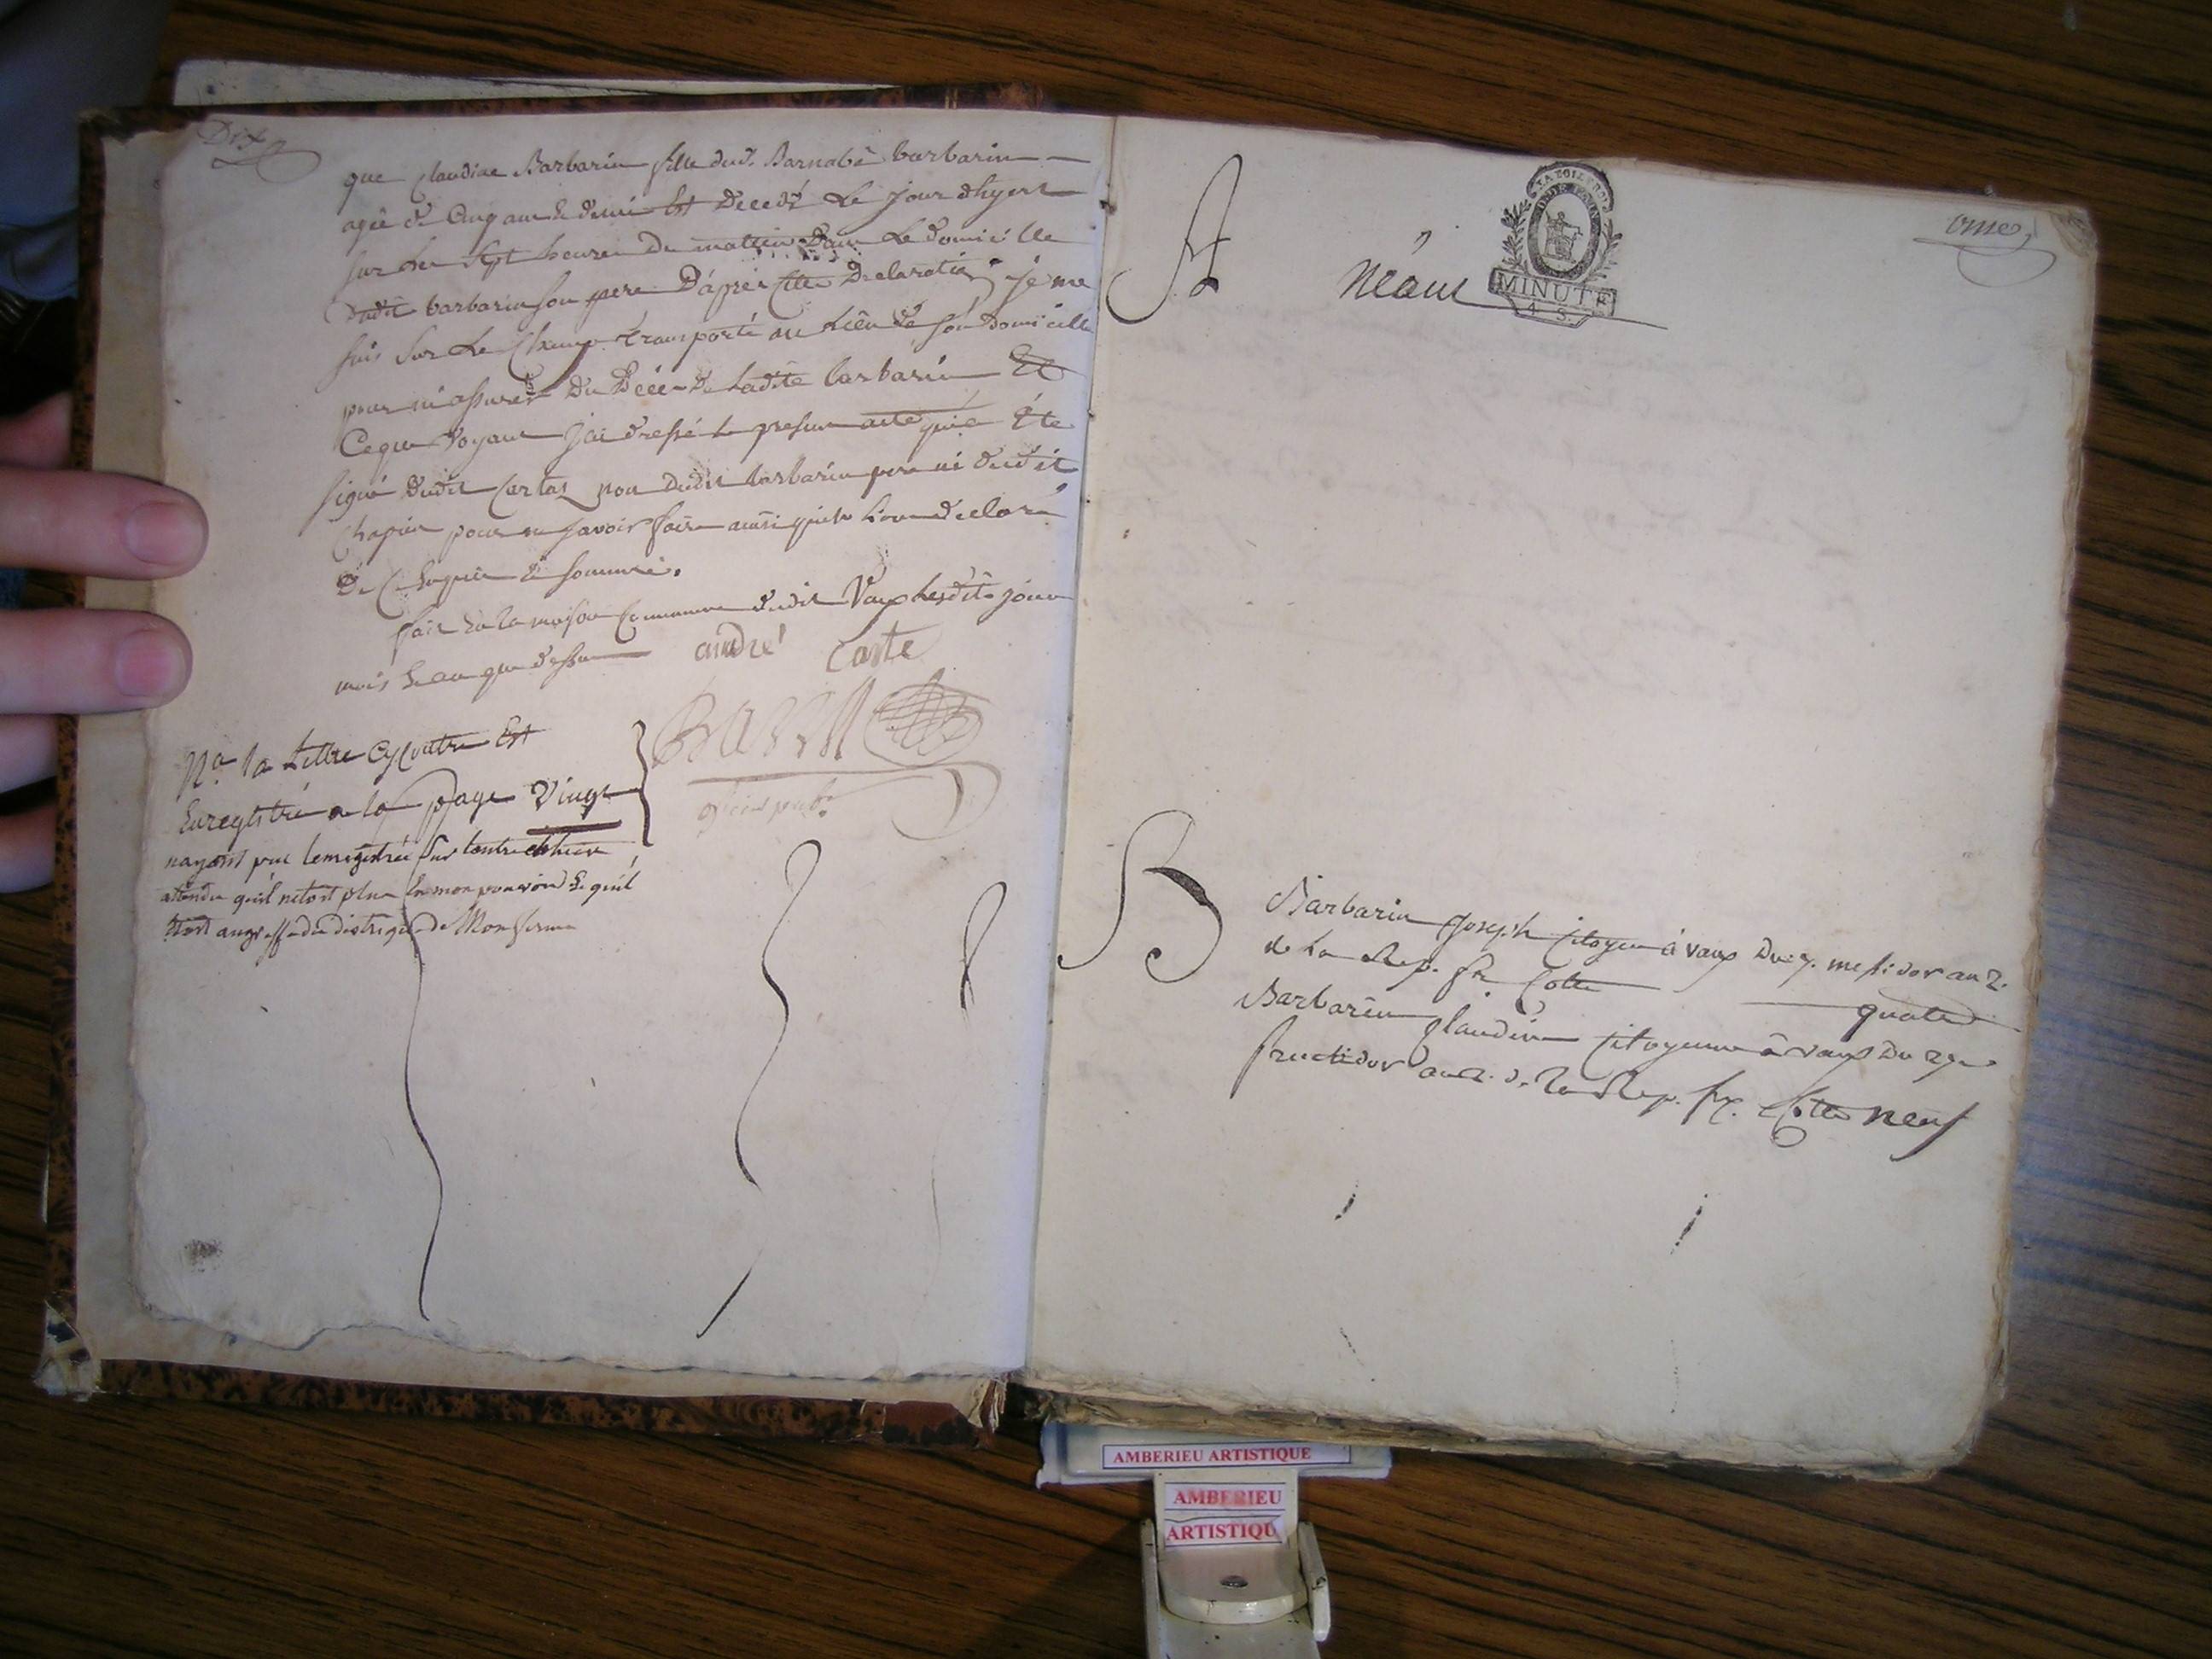 Dix
que Claudine Barbarin fille dud. Barnabé barbarin
agée de Cinq ans & demi Est Decedé Le jour d'hyert
sur les Sept heures du mattin Dans Le domicille
dudit barbarin son pere D'après cette Declaration je me
suis sur Le Champ transporté au Lieu de son Domicille
pour m'assurer Du Décé De Ladite barbarin Et
Ceque voyant J'ai dressé Le present acte qui a Été
signé dudit Cartaz non dudit barbarin pere ni dudit
Chapin pour ne savoir faire ainsi qu'ils L'ont déclaré
De Ce Enquis & sommé.
fait En la maison Commune dudit Vaux Lesdits jour
mois & an que dessus andré Carte
N.a la Lettre Cy Contre Est
Enregistré a la page Vingt
nayant pue lenregistrée sur lautre
attendu quil netoit plus En mon pouvoir & quil
étoit au greffe du district de Montferme
onze
A
Néant
MINUTE
4 S.
B
Barbarin Joseph Citoyen à vaux Du 7. messidor an 2.
de La Rep. fr. Cotte quatre
Barbarin Claudine Citoyenne à vaux Du 29
fructidor an 2. de La Rep. fr. Cotte neuf
AMBERIEU ARTISTIQUE
AMBERIEU
ARTISTIQU